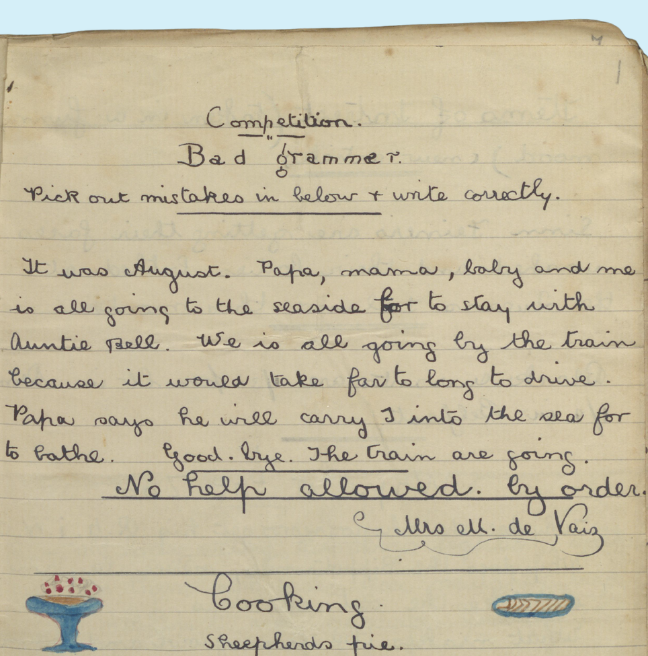 Competition.
Bad grammer.
Pick out mistakes in below + write correctly.
It was August. Papa, mama, baby and me
is all going to the seaside for to stay with
Auntie Bell. We is all going by the train
because it would take far to long to drive.
Papa says he will carry I into the sea for
to bathe. Good-bye. The train are going.
No help allowed. by order.
Mrs M. de Vaiz
Cooking.
Sheepherds pie.